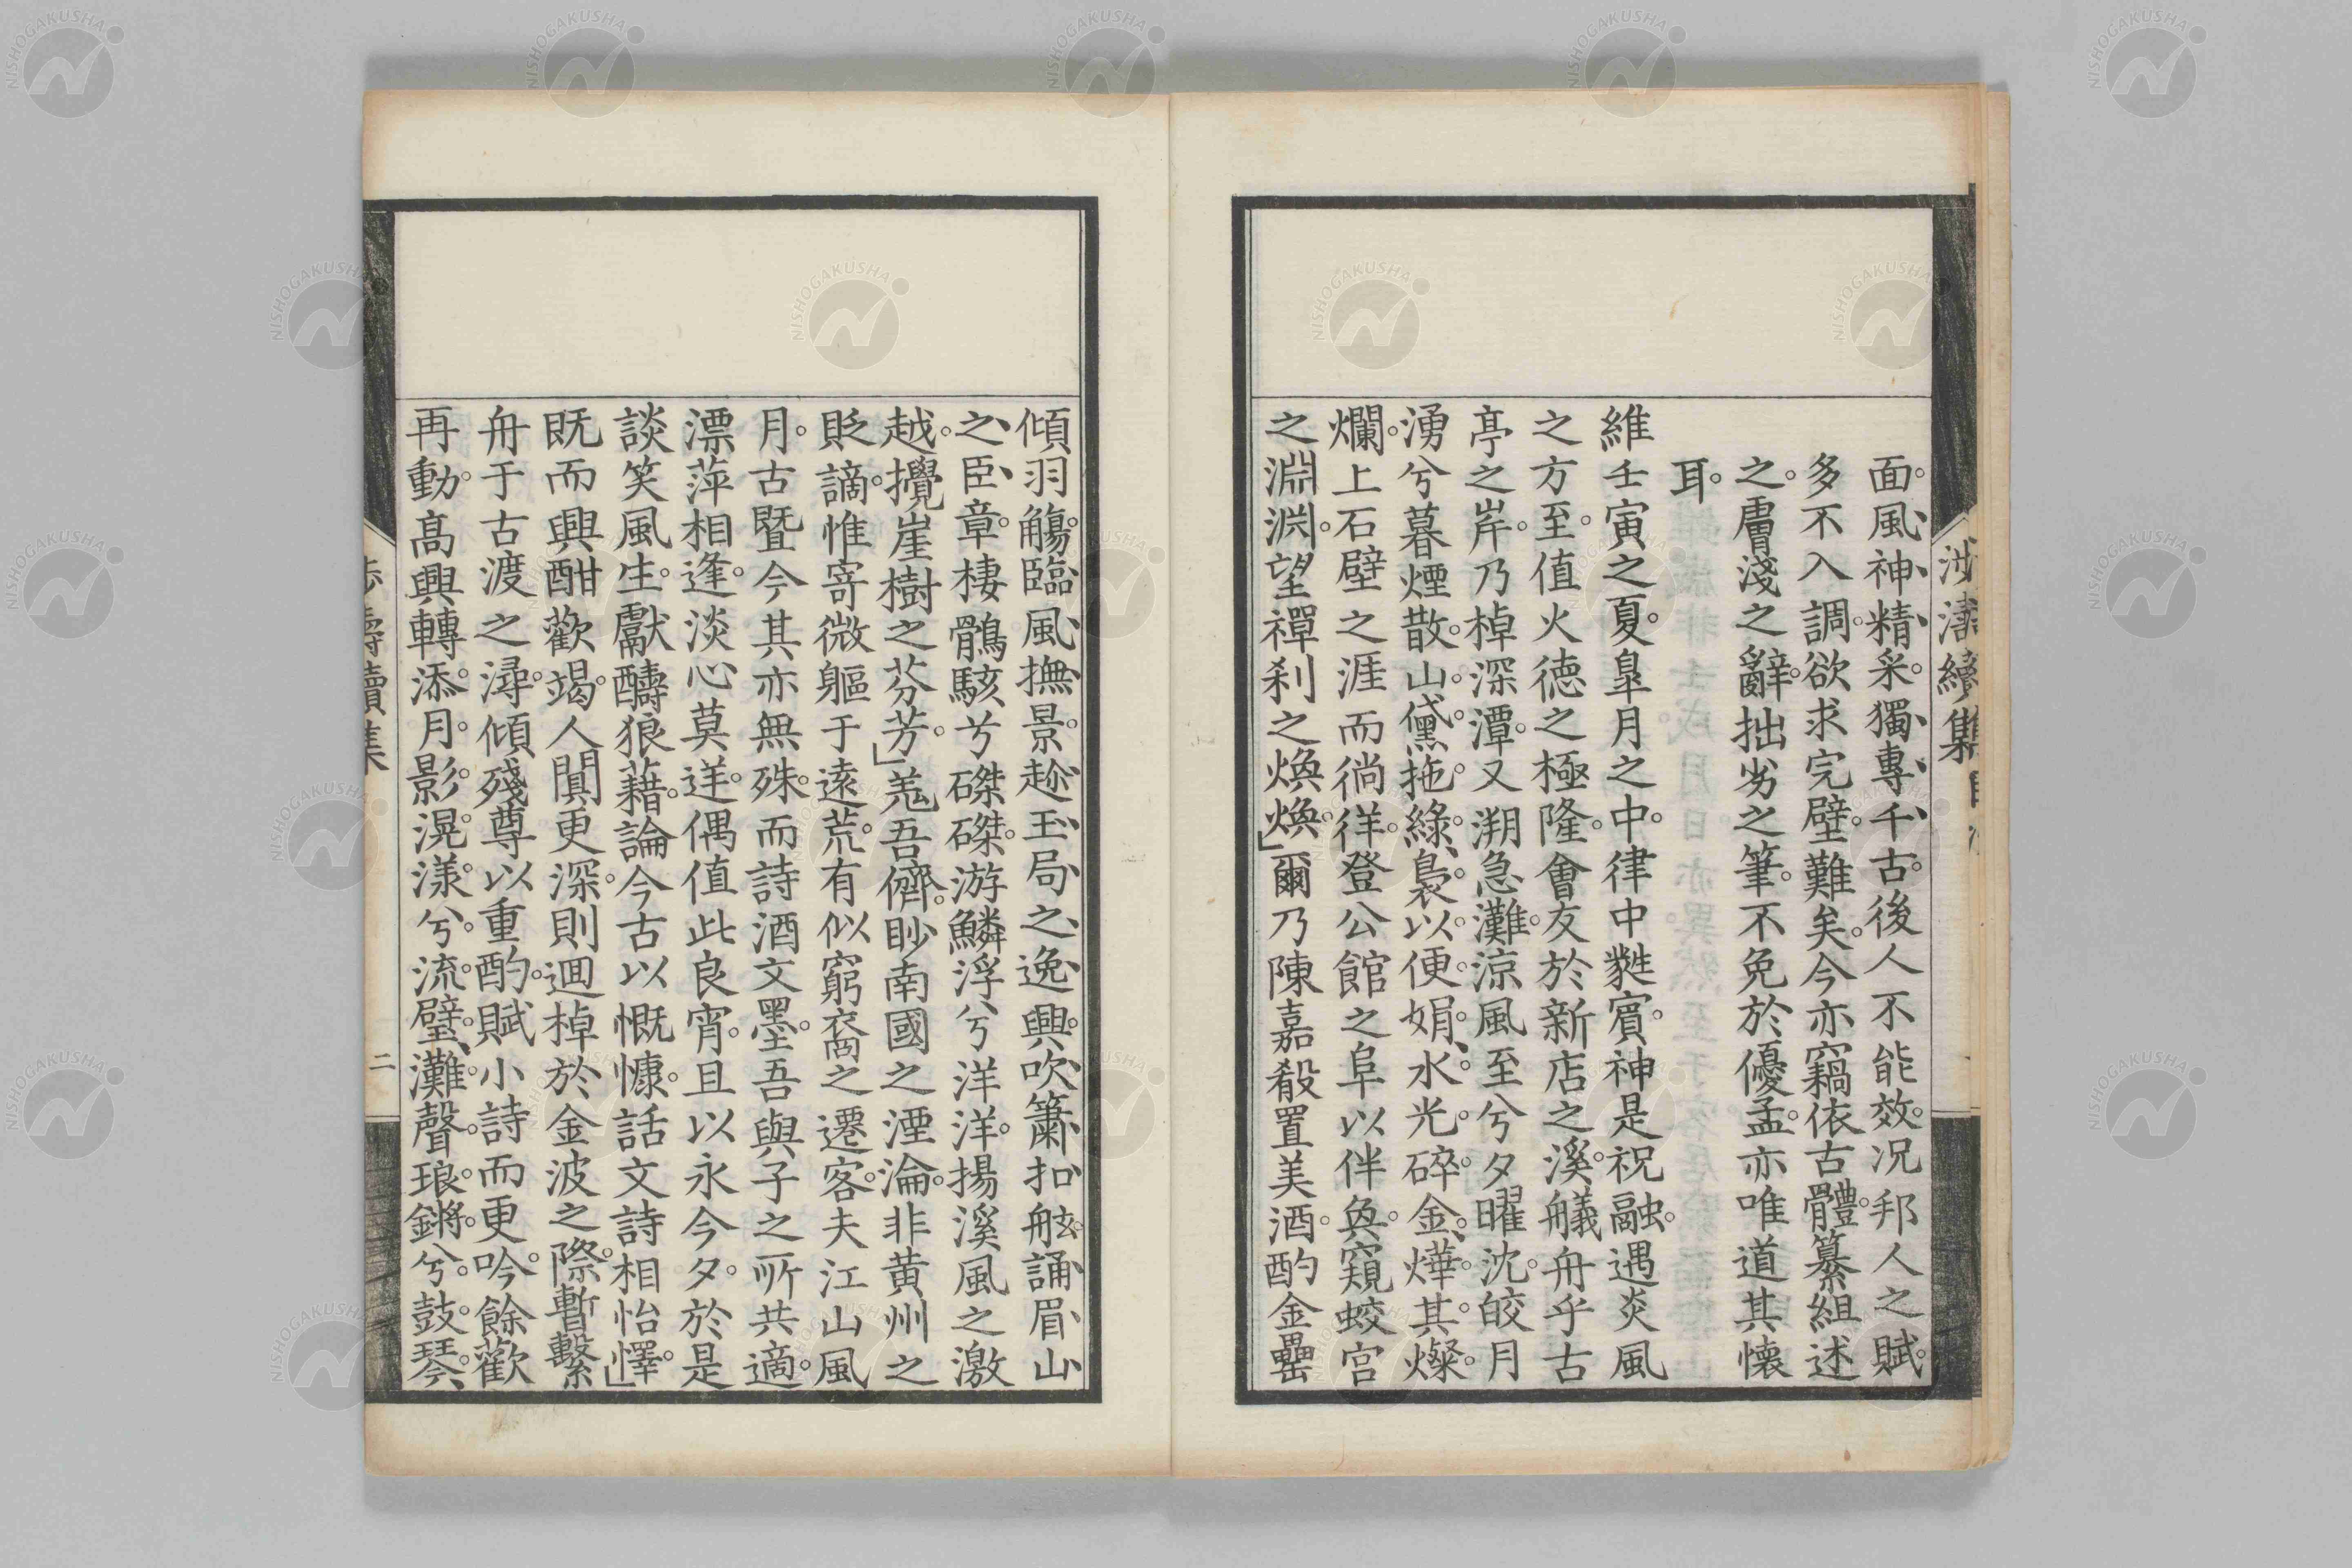 面。風神、精采。獨、專、千、古。後人不能效。況邦人之賦。
多不入調。欲求完璧。難矣。今亦竊依古體。纂組述
之。膚淺之辭。拙劣之筆。不免於優孟。亦唯道其懷
耳。
維壬寅之夏。皐月之中。律中蕤賓。神是祝融。遇炎風
之方至。值火德之極隆。會友於新店之溪。艤舟乎古
亭之岸。乃棹深潭。又溯急灘。涼風至兮夕曜沈。皎月
湧兮暮煙散。山。黛。拖。綠、裊。以。便。娟。水。光。碎。金、燁。其。燦。
爛。上石壁之涯而徜徉。登公館之阜以伴奐。窺蛟宮
之淵淵。望禪刹之煥煥。」爾乃陳嘉殽置美酒。酌金罍
傾羽觴。臨風、撫景。趁玉、局、之、逸興。吹、簫、扣舷。誦、眉、山
之、臣、章。棲鶻駭兮磔磔。游鱗浮兮洋洋。揚溪風之激
越。攪崖樹之芬芳。」羗吾儕。眇南國之湮淪。非黄州之
貶謫。惟寄微軀于遠荒。有似窮裔之遷客。夫江山風
月。古暨今其亦無殊。而詩酒文墨。吾與子之所共適。
漂萍相逢。淡心莫逆。偶值此良宵。且以永今夕。於是
談笑風生。獻醻狼藉。論今古以慨慷。話文詩相怡懌。」
既而興酣歡竭。人闃更深。則迴棹於金波之際。暫繫
舟于古渡之潯。傾殘尊以重酌。賦小詩而更吟。餘歡
再動。高興轉添。月。影。滉。漾。兮。流。璧、灘。聲。琅。鏘。兮。鼓。琴、
涉濤續集
二